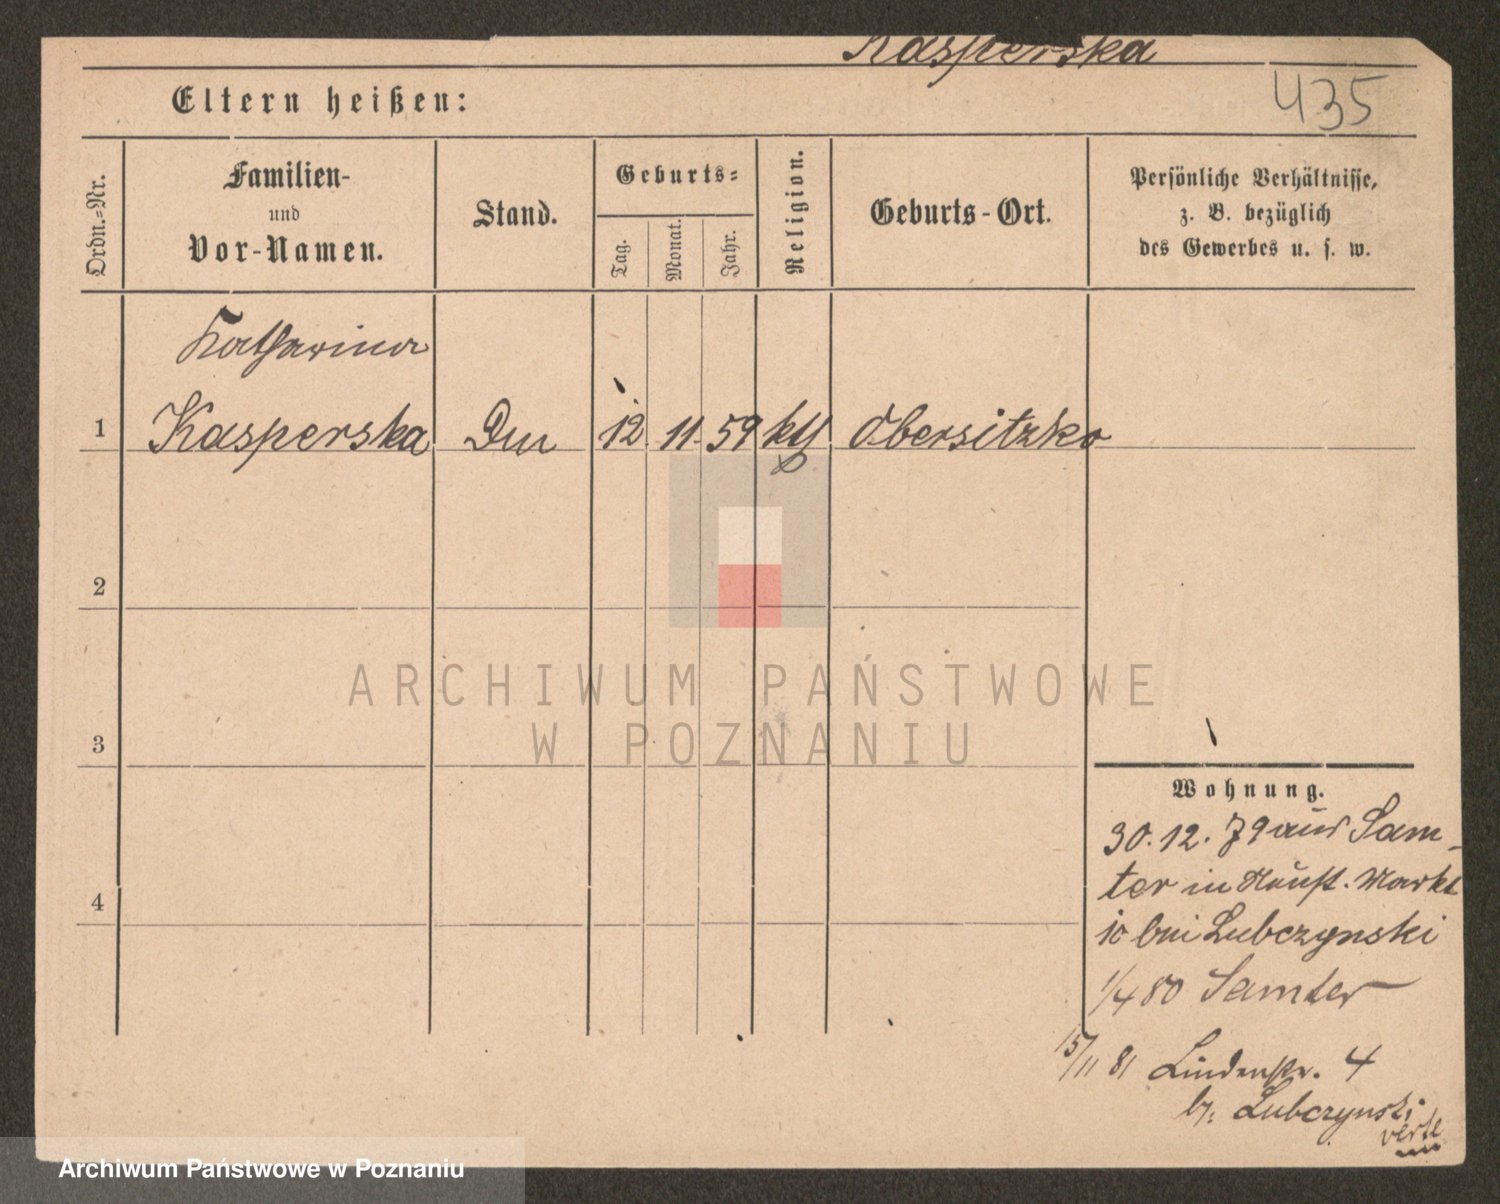 Kasperska
435
Eltern heißen:
Ordn.=Nr.
Familien-
und
Vor-Namen.
Stand.
Geburts=
Tag.
Monat.
Jahr.
Religion.
Geburts-Ort.
Persönliche Verhältnisse,
z. B. bezüglich
des Gewerbes u. s. w.
Katharina
1 Kasperska 12 11 59 kth Obersitzko
2
3
4
ARCHIWUM PAŃSTWOWE
W POZNANIU
Wohnung.
30.12.79 aus Sam-
ter in Markt
10 bei Lubczynski
1/4 80 Samter
15/11 81 Lindenstr. 4
b. Lubczynski
verte
Archiwum Państwowe w Poznaniu